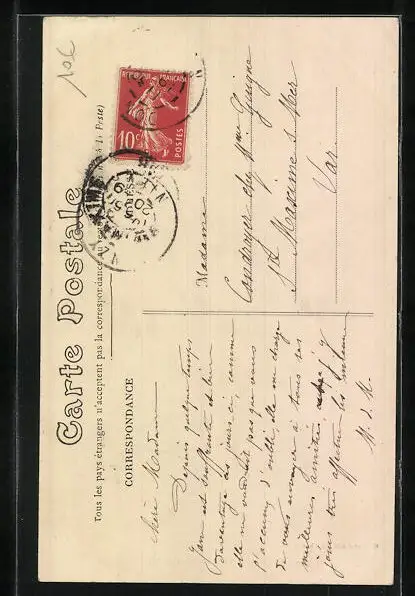 10c
Carte Postale
Tous les pays étrangers n'acceptent pas la correspondance au
à la Poste)
CORRESPONDANCE
REPUBLIQUE FRANÇAISE
10c
POSTES
Madame
chez Mme Guigne
Ste Maxime s Mer
Var
Chère Madame
Depuis quelques temps
est souffrante et bien
davantage ces jours ci, comme
elle ne voudrait pas que vous
l'accusiez d'oubli elle me charge
de vous envoyer à tous ses
meilleures amitiés
joins très affectueux
M. de M.